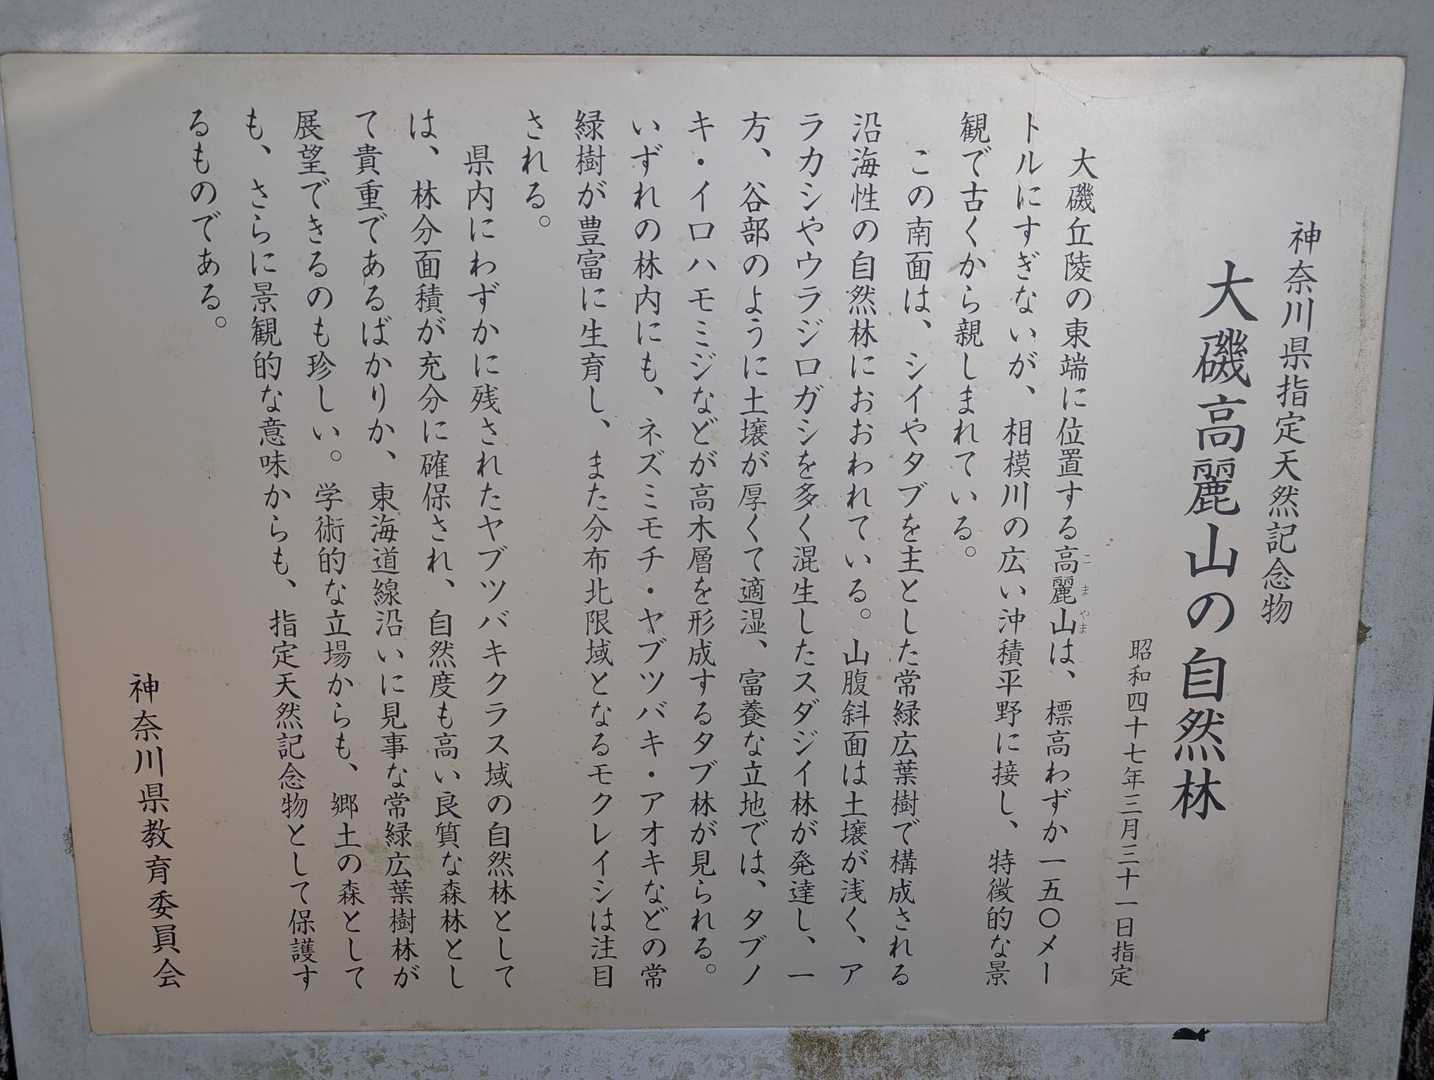 神奈川県指定天然記念物
大磯高麗山の自然林
昭和四十七年三月三十一日指定
大磯丘陵の東端に位置する高麗山は、標高わずか一五〇メー
こまやま
トルにすぎないが、相模川の広い沖積平野に接し、特徴的な景
観で古くから親しまれている。
この南面は、シイやタブを主とした常緑広葉樹で構成される
沿海性の自然林におおわれている。山腹斜面は土壌が浅く、ア
ラカシやウラジロガシを多く混生したスダジイ林が発達し、一
方、谷部のように土壌が厚くて適湿、富養な立地では、タブノ
キ・イロハモミジなどが高木層を形成するタブ林が見られる。
いずれの林内にも、ネズミモチ・ヤブツバキ・アオキなどの常
緑樹が豊富に生育し、また分布北限域となるモクレイシは注目
される。
県内にわずかに残されたヤブツバキクラス域の自然林として
は、林分面積が充分に確保され、自然度も高い良質な森林とし
て貴重であるばかりか、東海道線沿いに見事な常緑広葉樹林が
展望できるのも珍しい。学術的な立場からも、郷土の森として
も、さらに景観的な意味からも、指定天然記念物として保護す
るものである。
神奈川県教育委員会